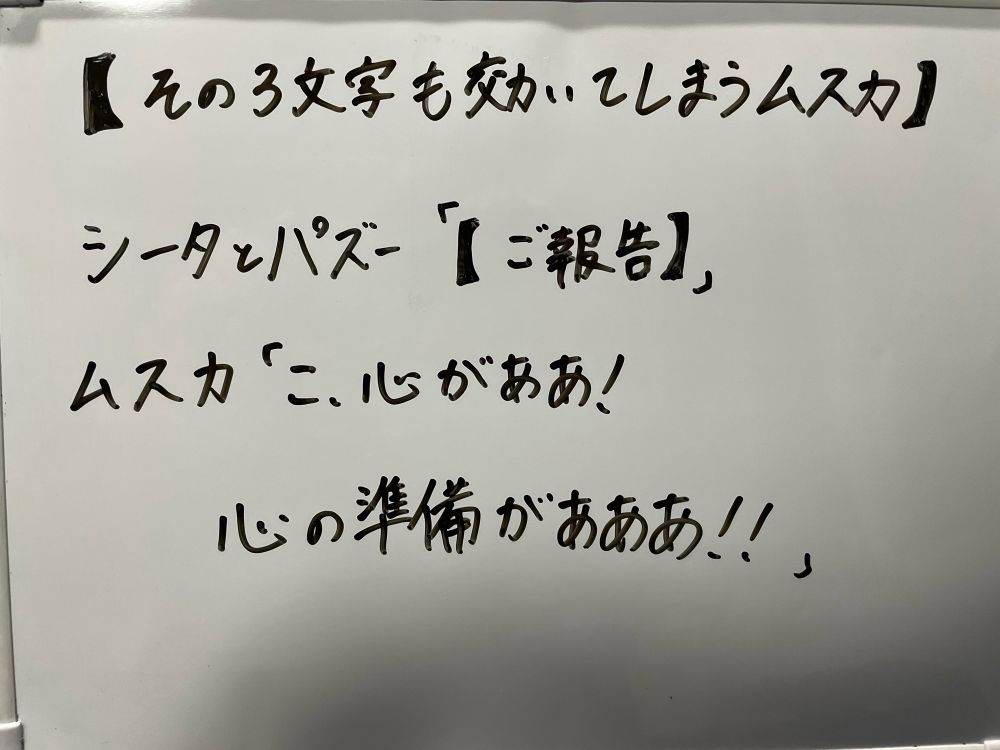 【その3文字も効いてしまうムスカ】
シータとパズー「【ご報告】」
ムスカ「こ、心がああ!
心の準備がぁああ!!」